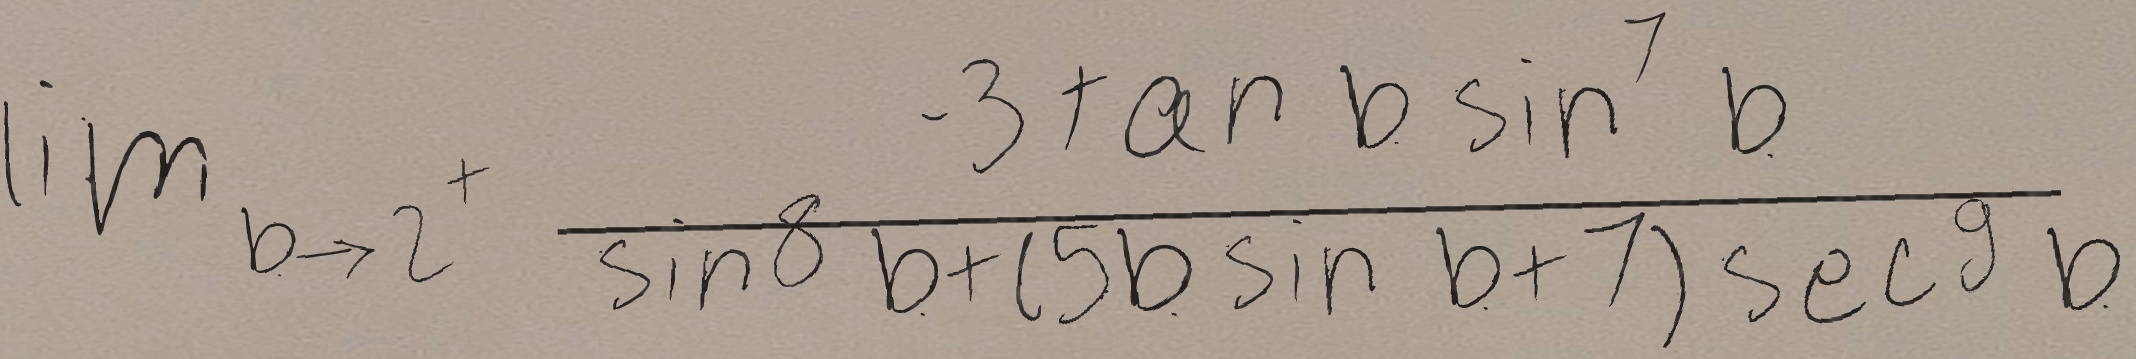 \lim_{b \to 2^+} \frac{-3 \tan b \sin^7 b}{\sin^8 b + (5b \sin b + 7) \sec^9 b}